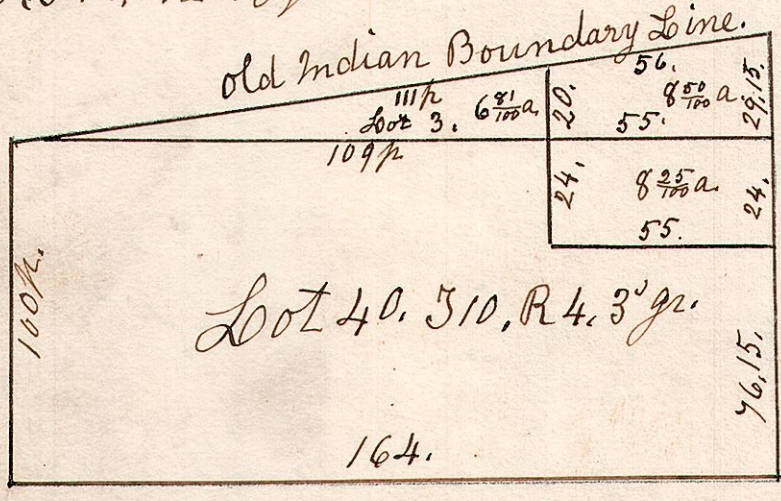 Old Indian Boundary Line.
111p
56.
Lot 3. 6 81/100 a.
20.
8 50/100 a.
29.15.
55.
109p.
24.
8 25/100 a.
24.
55.
100p.
Lot 40. T10, R4. 3d gr.
76.15.
164.